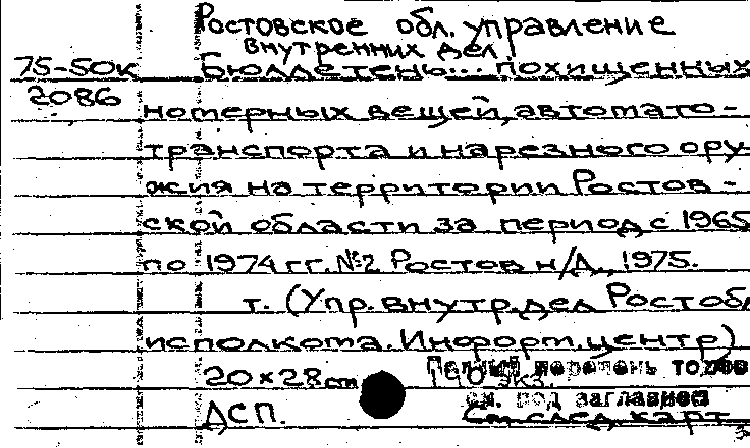 Ростовское обл. управление
внутренних дел.
75-50к Бюллетень... похищенных
2086 номерных вещей, автомато-
транспорта и нарезного ору-
жия на территории Ростов-
ской области за период с 1965
по 1974 гг. №2 Ростов н/Д., 1975.
т. (Упр. внутр. дел Ростобл
исполкома. Информ. центр)
20×28 см экз.
Полный перечень томов
см. под заглавием
ДСП. См. след. карт.